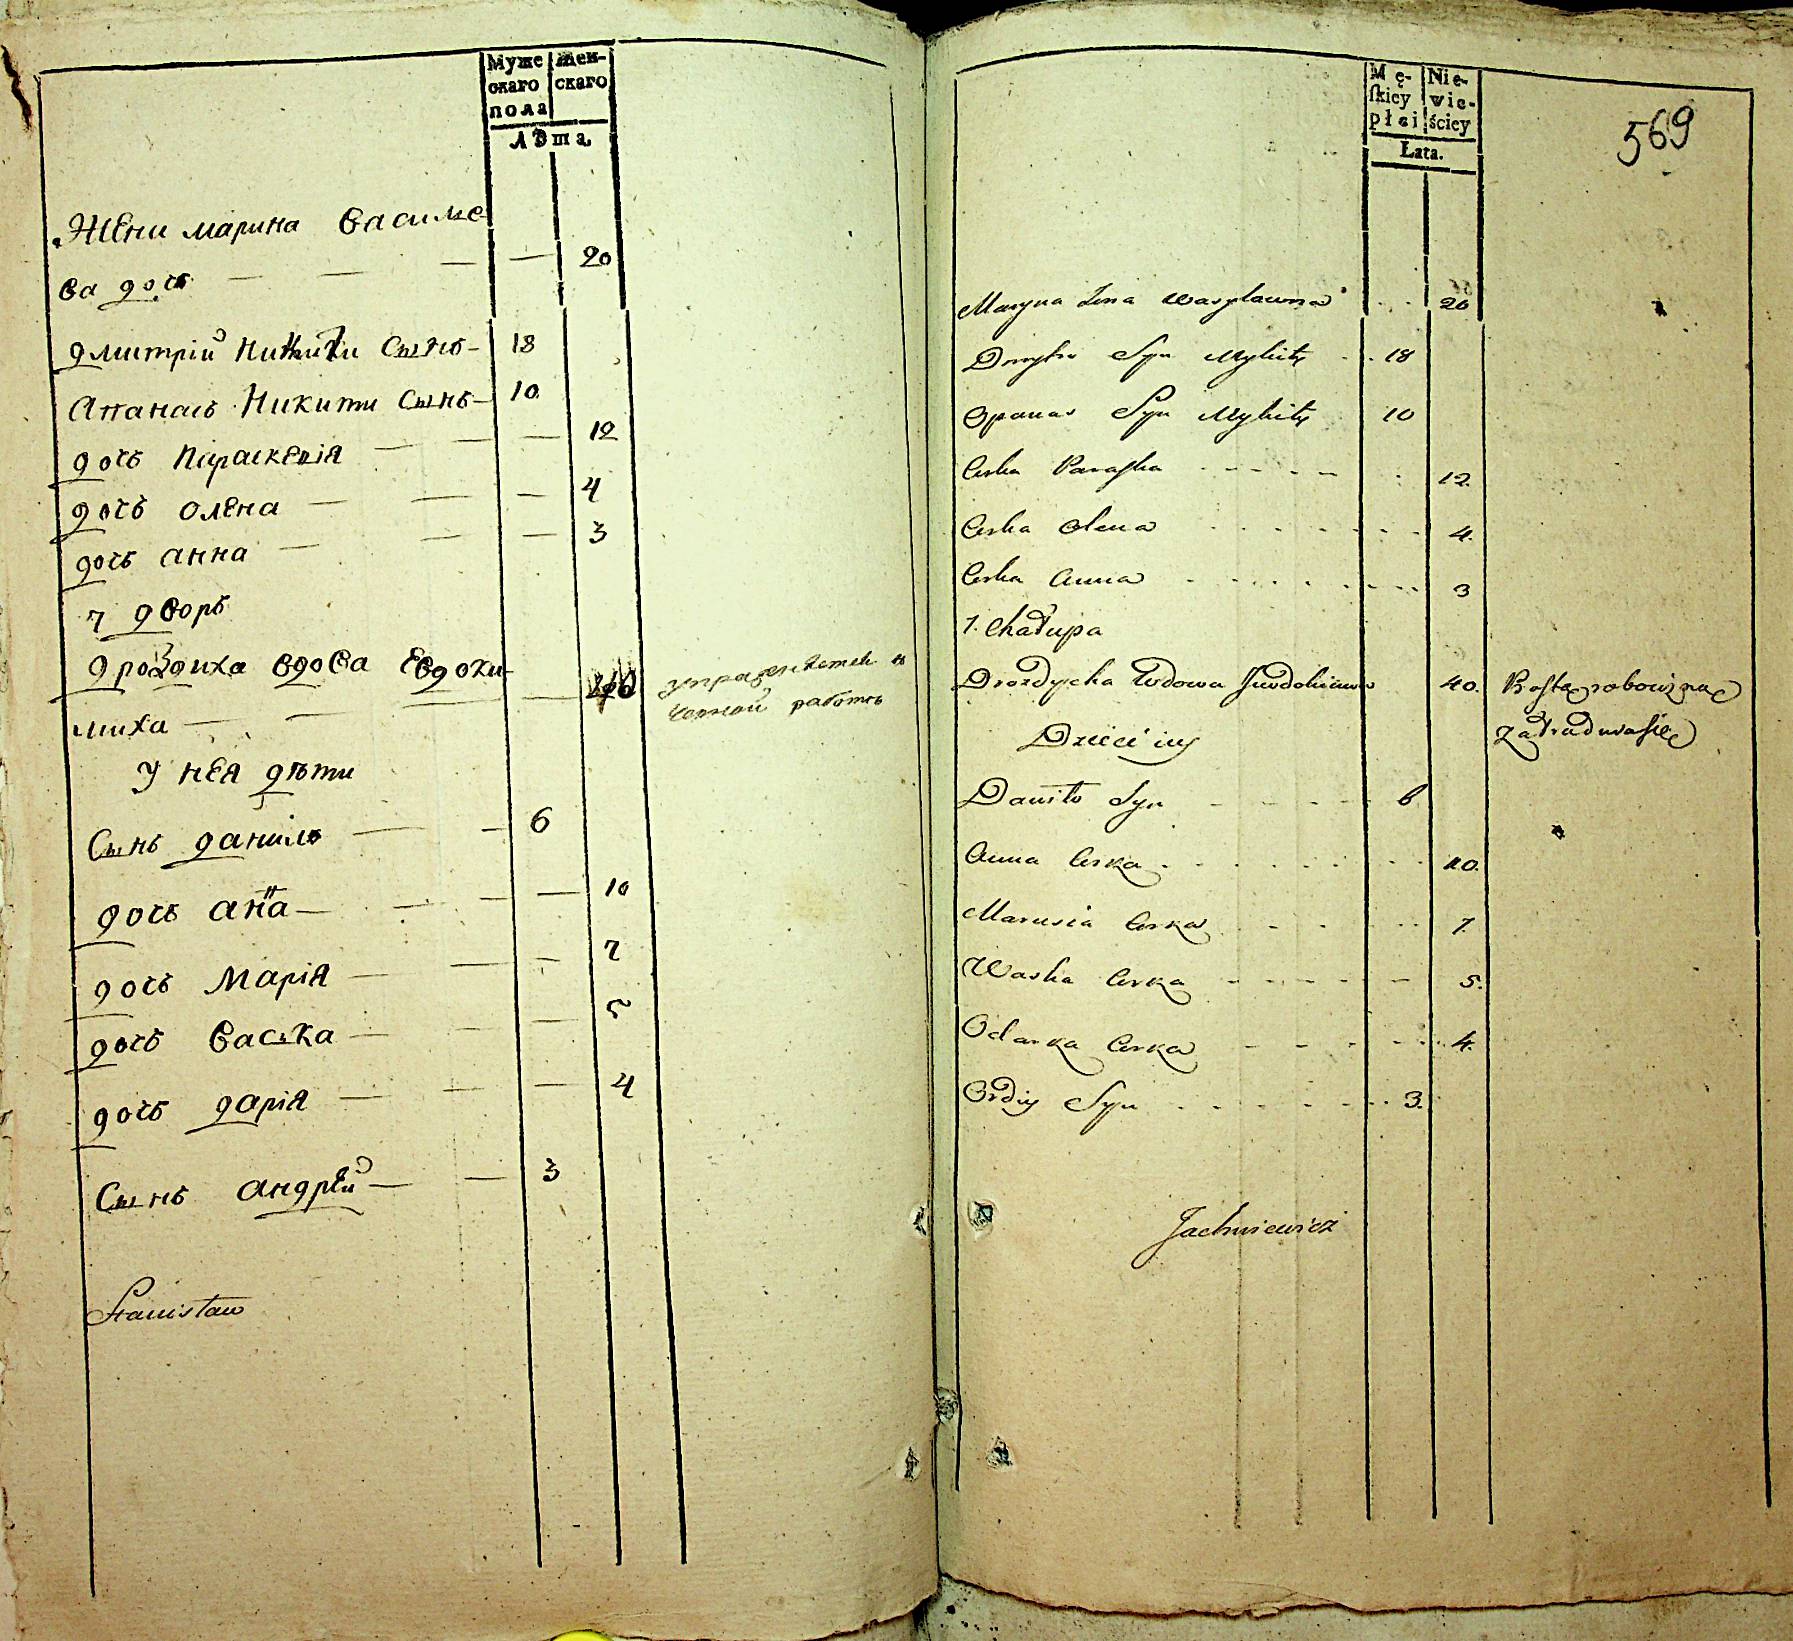 Муже
скаго
пола
Жен-
скаго
Лѣта.
Жени марина Василье
ва дочь — — — — 20
дмитрій Никити Сынъ — 18
Апанасъ Никити Сынъ — 10
дочь Параскевія — — — 12
дочь олена — — — 4
дочь анна — — — 3
7 дворъ
дроздиха вдова Евдоки-
миха — — — — 40
чорной работѣ
У нея дѣти
Сынъ данило — — 6
дочь анна — — — — 10
дочь Марія — — — 7
дочь Васька — — — 5
дочь дарія — — — 4
Сынъ андрѣй — — 3
Stanisław
Mę-
ſkiey
płci
Nie-
wie-
ściey
Łata.
569
Maryna Żona Wasylowna . . 20
Dmytro Syn Mykity . . 18
Opanas Syn Mykity 10
Corka Paraska 12.
Corka Olena 4.
Corka Anna 3
7. Chałupa
Drozdycha Wdowa 40.
Dzieci iey
Daniło Syn 6
Anna Corka 10.
Marusia Corka 7.
Waska Corka 5.
Odarka Corka 4.
Ordiy Syn 3.
Jachniewicz